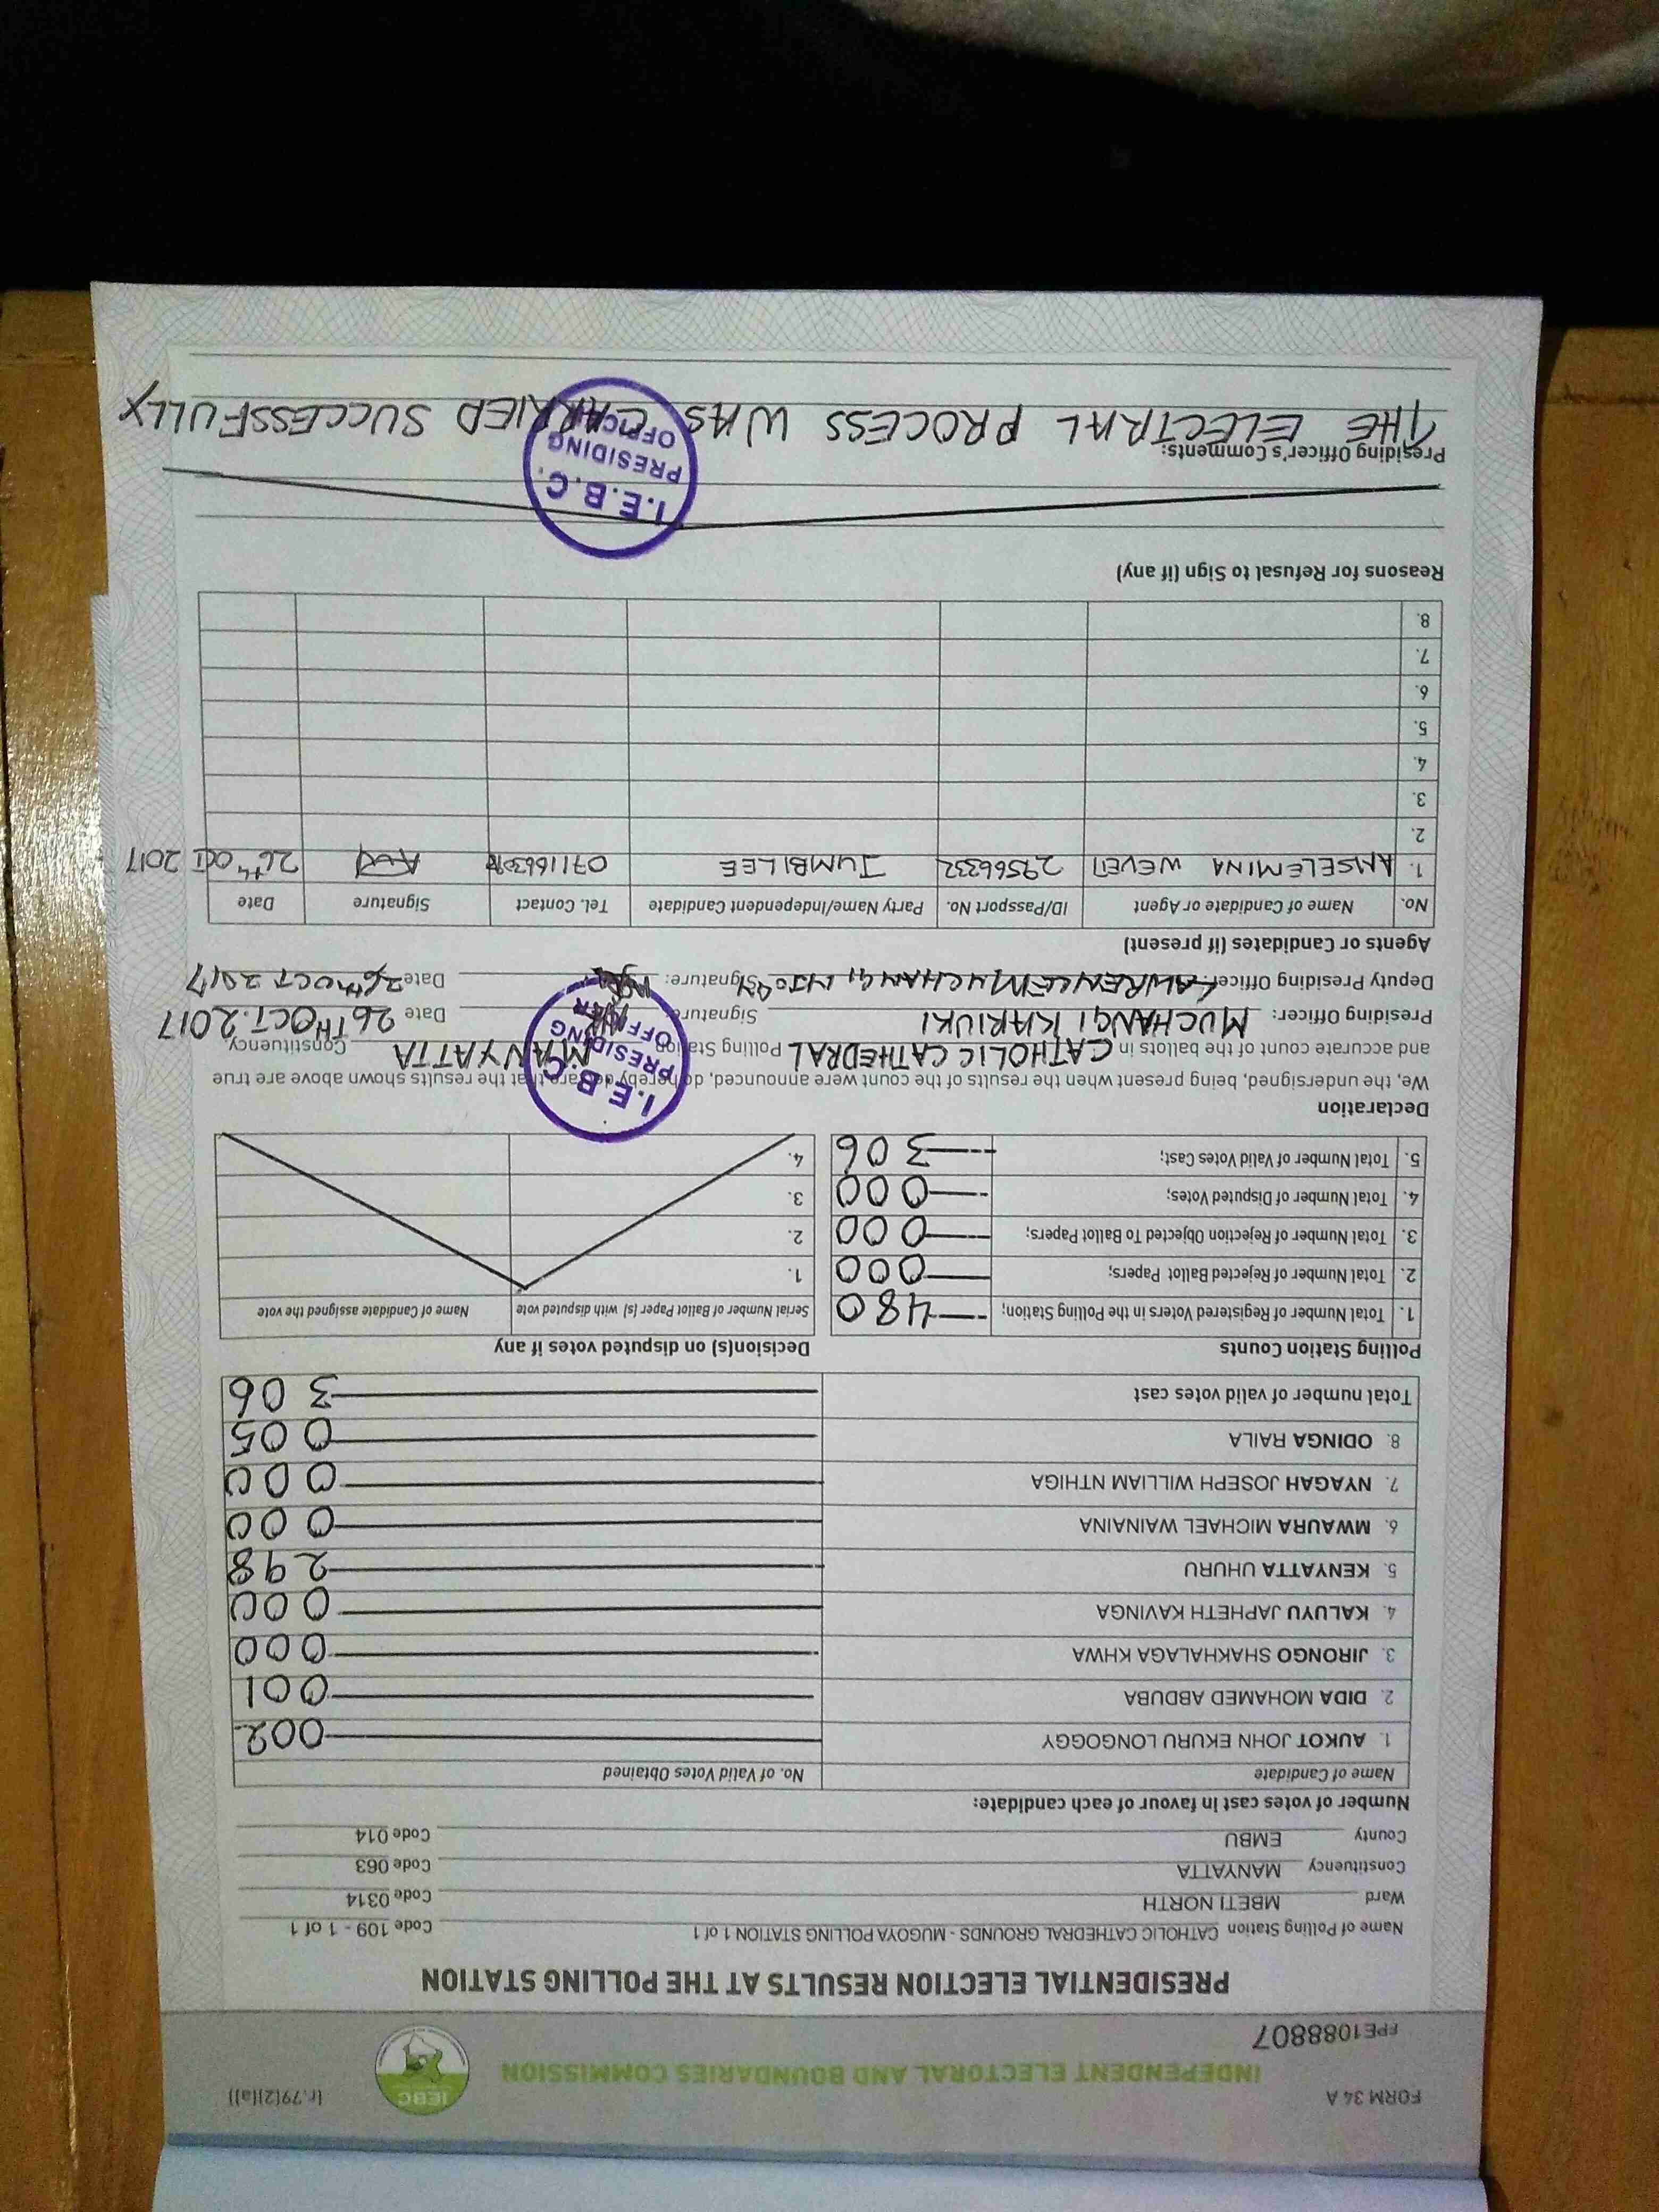 FORM 34 A
(r.79(2)(a))
INDEPENDENT ELECTORAL AND BOUNDARIES COMMISSION
IEBC
FPE1088807
PRESIDENTIAL ELECTION RESULTS AT THE POLLING STATION
Name of Polling Station CATHOLIC CATHEDRAL GROUNDS - MUGOYA POLLING STATION 1 of 1 Code 109 - 1 of 1
Ward MBETI NORTH Code 0314
Constituency MANYATTA Code 063
County EMBU Code 014
Number of votes cast in favour of each candidate:
Name of Candidate No. of Valid Votes Obtained
1. AUKOT JOHN EKURU LONGOGGY 002
2. DIDA MOHAMED ABDUBA 001
3. JIRONGO SHAKHALAGA KHWA 000
4. KALUYU JAPHETH KAVINGA 000
5. KENYATTA UHURU 298
6. MWAURA MICHAEL WAINAINA 000
7. NYAGAH JOSEPH WILLIAM NTHIGA 000
8. ODINGA RAILA 005
Total number of valid votes cast 306
Polling Station Counts Decision(s) on disputed votes if any
1. Total Number of Registered Voters in the Polling Station; 480 Serial Number of Ballot Paper (s) with disputed vote Name of Candidate assigned the vote
2. Total Number of Rejected Ballot Papers; 000 1.
3. Total Number of Rejection Objected To Ballot Papers; 000 2.
4. Total Number of Disputed Votes; 000 3.
5. Total Number of Valid Votes Cast; 306 4.
Declaration
We, the undersigned, being present when the results of the count were announced, do hereby declare that the results shown above are true
and accurate count of the ballots in CATHOLIC CATHEDRAL Polling Station MANYATTA Constituency
Presiding Officer: MUCHANGI KARIUKI Signature Date 26TH OCT. 2017
Deputy Presiding Officer: LAWRENCE MUCHANGI Signature: Date 26TH OCT 2017
I.E.B.C.
PRESIDING
OFFICER
Agents or Candidates (if present)
No. Name of Candidate or Agent ID/Passport No. Party Name/Independent Candidate Tel. Contact Signature Date
1. ANSELEMINA WEVETI 29566332 JUMBILEE 26TH OCT 2017
2.
3.
4.
5.
6.
7.
8.
Reasons for Refusal to Sign (if any)
Presiding Officer's Comments:
THE ELECTRAL PROCESS WAS CARRIED SUCCESSFULLY
I.E.B.C.
PRESIDING
OFFICER